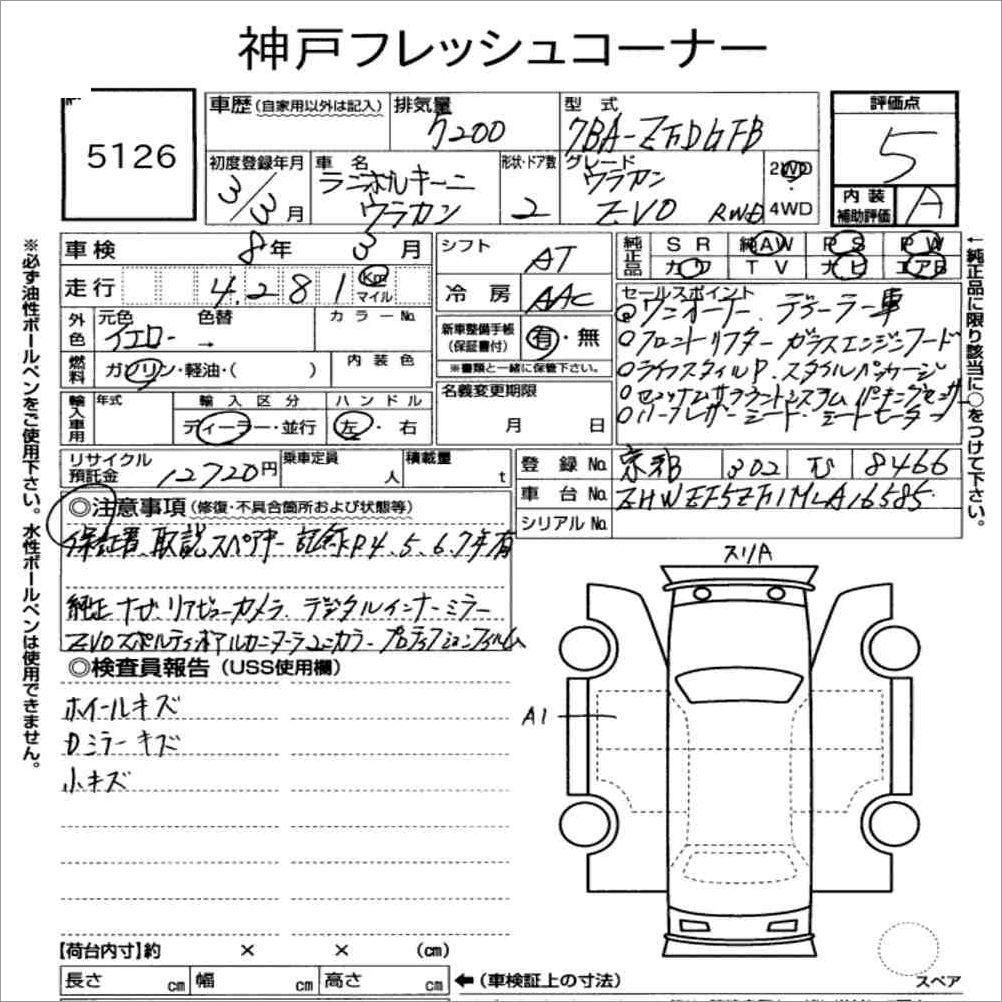 神戸フレッシュコーナー
5126
車歴 (自家用以外は記入)
排気量
7200
型式
7BA-ZFDGFB
評価点
5
内装補助評価
A
初度登録年月
3/3月
車名
ランボルギーニ
ウラカン
形状・ドア数
2
グレード
ウラカン
EVO RWD
2WD
・
4WD
車検 8年 3月
走行 4.281 Km マイル
外色
元色
イエロー
色替
→
カラーNo.
燃料
ガソリン・軽油・( )
内装色
輸入車用
年式
輸入区分
ディーラー・並行
ハンドル
左・右
シフト
AT
冷房
AAC
新車整備手帳
(保証書付)
有・無
※書類と一緒に保管下さい。
名義変更期限
月 日
純正品
SR 純AW PS PW
カワ TV ナビ エアB
セールスポイント
ワンオーナー. ディーラー車
○フロントリフター ガラスエンジンフード
○ライフスタイルP. スタイルパッケージ
○センソナムサラウンドシステム パーキングセンサー
○ハーフレザーシート・シートヒーター
リサイクル預託金
12720円
乗車定員
人
積載量
t
登録No.
京都 302 8466
車台No.
ZHWEF5ZF1MLA16585
シリアルNo.
◎注意事項 (修復・不具合箇所および状態等)
保証書、取説、スペアキー 記録R4.5.6.7年有
純正ナビ、リアビューカメラ. デジタルインナーミラー
EVOスポルティボ アルカンターラユニカラー プロテクションフィルム
◎検査員報告 (USS使用欄)
ホイールキズ
Dミラーキズ
小キズ
スリA
A1
【荷台内寸】約 × × (cm)
長さ cm 幅 cm 高さ cm
← (車検証上の寸法)
スペア
※必ず油性ボールペンをご使用下さい。水性ボールペンは使用できません。
←純正品に限り該当に○をつけて下さい。